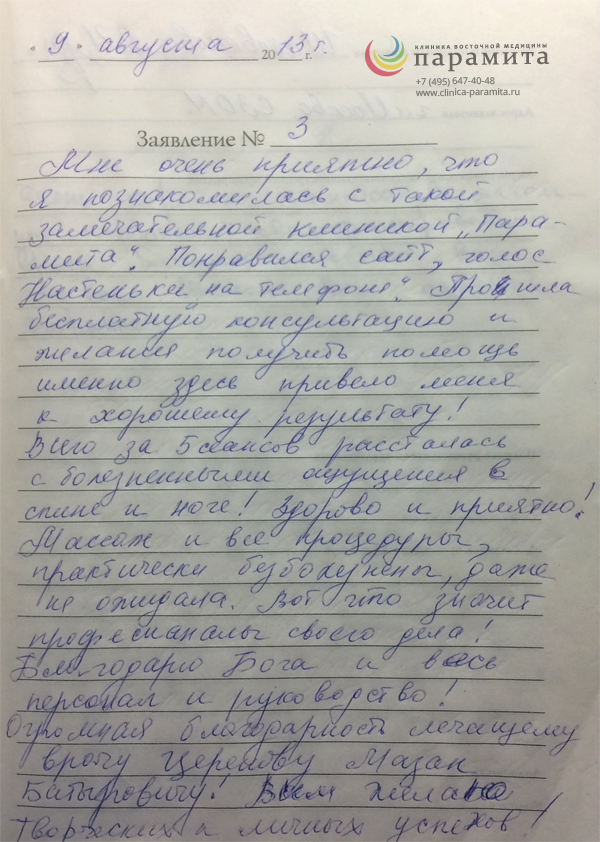 « 9 » августа 2013 г. г.
КЛИНИКА ВОСТОЧНОЙ МЕДИЦИНЫ
ПАРАМИТА
+7 (495) 647-40-48
www.clinica-paramita.ru
Заявление № 3
Мне очень приятно, что
я познакомилась с такой
замечательной клиникой „Пара-
мита". Понравился сайт, голос
Настеньки „на телефоне". Прошла
бесплатную консультацию и
желание получить помощь
именно здесь привело меня
к хорошему результату!
Всего за 5 сеансов рассталась
с болезненными ощущения в
спине и ноге! Здорово и приятно!
Массаж и все процедуры,
практически безболезнены, даже
не ожидала. Вот что значит
професианалы своего дела!
Благодарю Бога и весь
персонал и руководство!
Огромная благодарность лечащему
врачу Церенову Мазан
Батыровичу! Вам желаю
творческих и личных успехов!